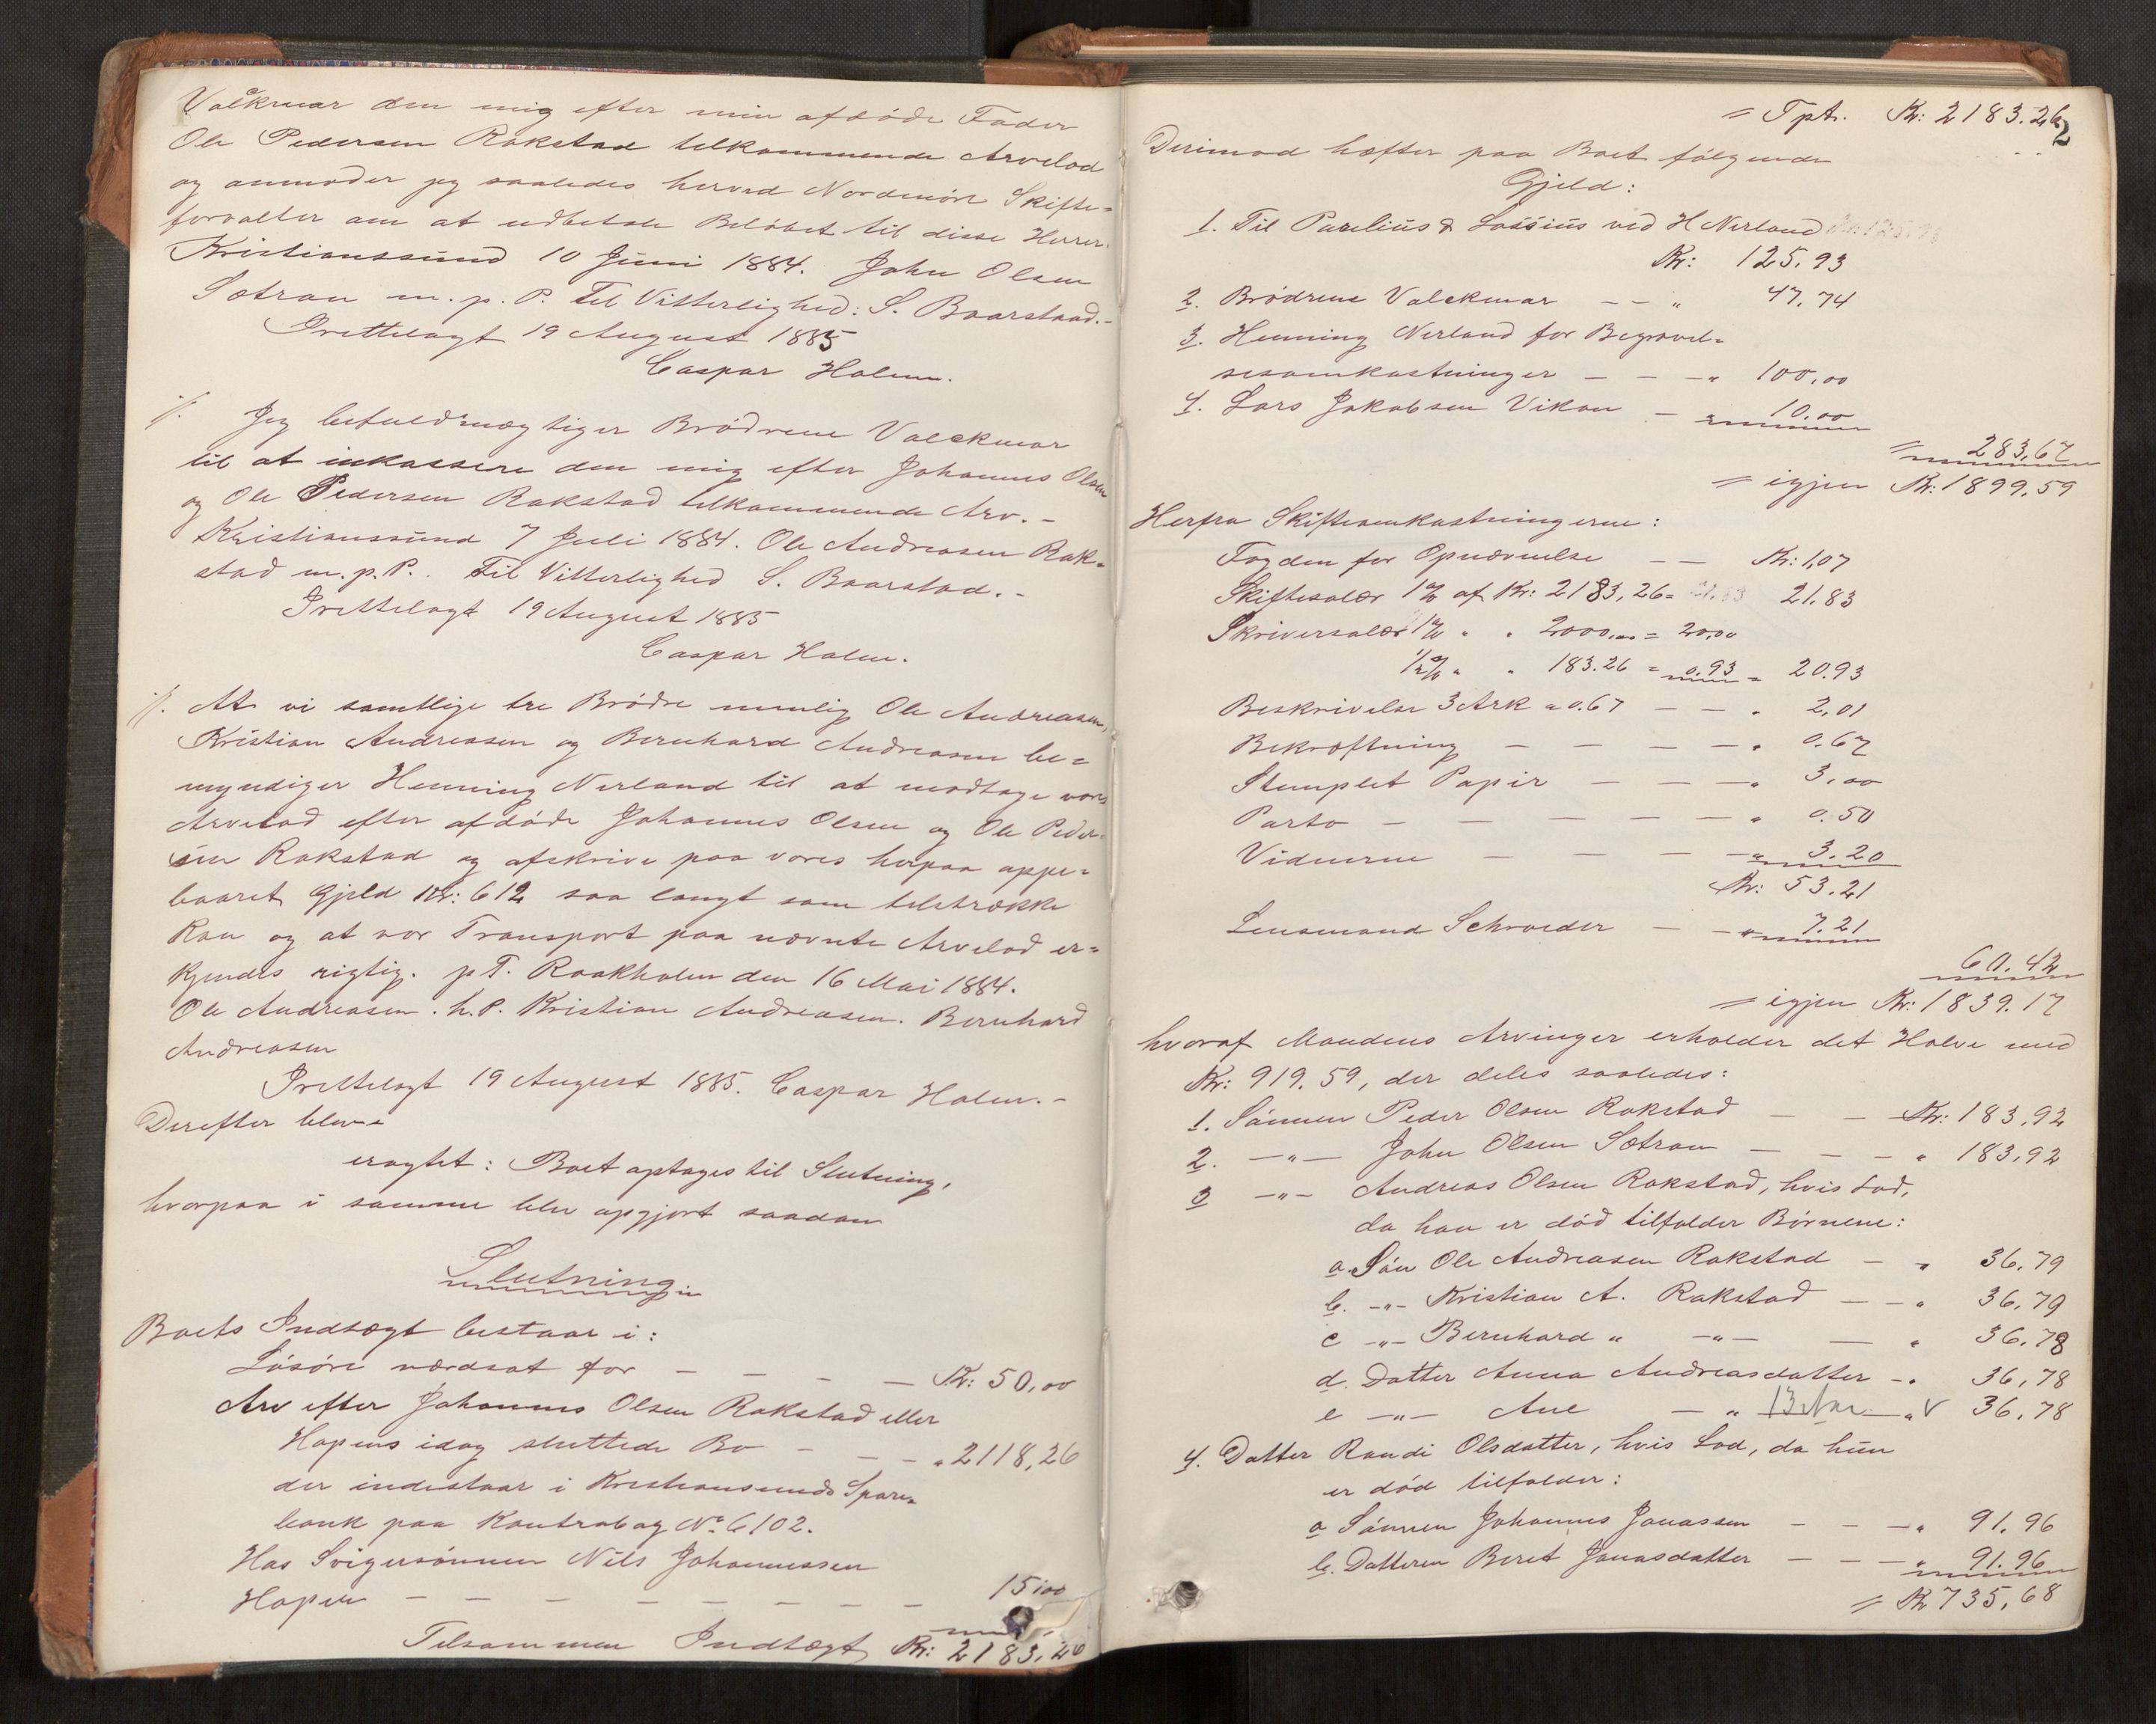 Valckmar den mig efter min afdøde Fader
Ole Pedersen Rokstad tilkommende Arvelod
og anmoder jeg saaledes herved Nordmøre Skifte=
forvalter om at udbetale Beløbet til disse Herrer.
Kristianssund 10 Juni 1884. John Olsen
Sætran m. p. P. Til Vitterlighed: S. Baarstad.-
Irettelagt 19 August 1885
Caspar Holm.
./. Jeg befuldmægtiger Brødrene Valckmar
til at inkassere den mig efter Johannes Olsen
og Ole Pedersen Rokstad tilkommende Arv.-
Kristianssund 7 Juli 1884. Ole Andreasen Rok=
stad m. p. P.. Til Vitterlighed S. Baarstad.-
Irettelagt 19 August 1885
Caspar Holm.
./. At vi samtlige tre Brødre nemlig Ole Andreasen,
Kristian Andreasen og Bernhard Andreasen be=
myndiger Henning Nerland til at modtage vores
Arvelod efter afdøde Johannes Olsen og Ole Peder=
sen Rokstad og afskrive paa vores herpaa oppe=
baaret Gjeld Kr: 612 saa langt som tilstrække
kan og at vor Transport paa nævnte Arvelod er=
kjendes rigtig. pT. Raakholm den 16 Mai 1884.
Ole Andreasen. h. P. Kristian Andreasen. Bernhard
Andreasen
Irettelagt 19 August 1885. Caspar Holm.-
Derefter blev
eragtet: Boet optages til Slutning,
hvorpaa i samme blev opgjort saadan
Slutning.
Boets Indtægt bestaar i:
Løsøre værdsat for — — — — Kr: 50,00
Arv efter Johannes Olsen Rokstad eller
Hopens idag sluttede Bo — — — " 2118,26
der indestaar i Kristiansunds Spare=
bank paa Kontrabog No 6102.
Hos Svigersønnen Nils Johannessen
Hopen — — — — — — — — 15,00
Tilsammen Indtægt Kr: 2183,26
2
= Tpt. Kr: 2183.26
Derimod hæfter paa Boet følgende
Gjeld:
1. Til Parelius & Lossius ved H Nerland
Kr: 125.93
2. Brødrene Valckmar — — " 47.74
3. Henning Nerland for Begravel=
sesomkostninger — — — " 100,00
4. Lars Jakobsen Vikan — " 10.00
= 283,67
= igjen Kr: 1899.59
Herfra Skifteomkostningerne:
Fogden for Opnævnelse — — Kr: 1,07
Skiftesalær 1% af Kr: 2183,26= 21.83
Skriversalær 1% " " 2000,00 = 20,00
1/2% " " 183.26 = 0.93 = 20.93
Beskrivelse 3 Ark a 0.67 — — " 2,01
Bekræftning — — — — " 0.67
Stemplet Papir — — — " 3,00
Porto — — — — — — " 0.50
Vidnerne — — — — " 3.20
Kr: 53.21
Lensmand Schrøder — — " 7.21
60.42
= igjen Kr: 1839.17
hvoraf Mandens Arvinger erholder det Halve med
Kr: 919.59, der deles saaledes:
1. Sønnen Peder Olsen Rokstad — — Kr: 183,92
2. —"— John Olsen Sætran — — — " 183,92
3 —"— Andreas Olsen Rokstad, hvis Lod,
da han er død tilfalder Børnene:
a. Søn Ole Andreasen Rokstad — " 36,79
b. —"— Kristian A. Rokstad — — " 36,79
c —"— Bernhard " —"— — " 36.78
d. Datter Anna Andreasdatter — " 36,78
e —"— Ane — " 13 Aar — " V 36,78
4. Datter Randi Olsdatter, hvis Lod, da hun
er død tilfalder:
a Sønnen Johannes Jonassen — — — " 91.96
b. Datteren Beret Jonasdatter — — — " 91.96
= Kr 735,68